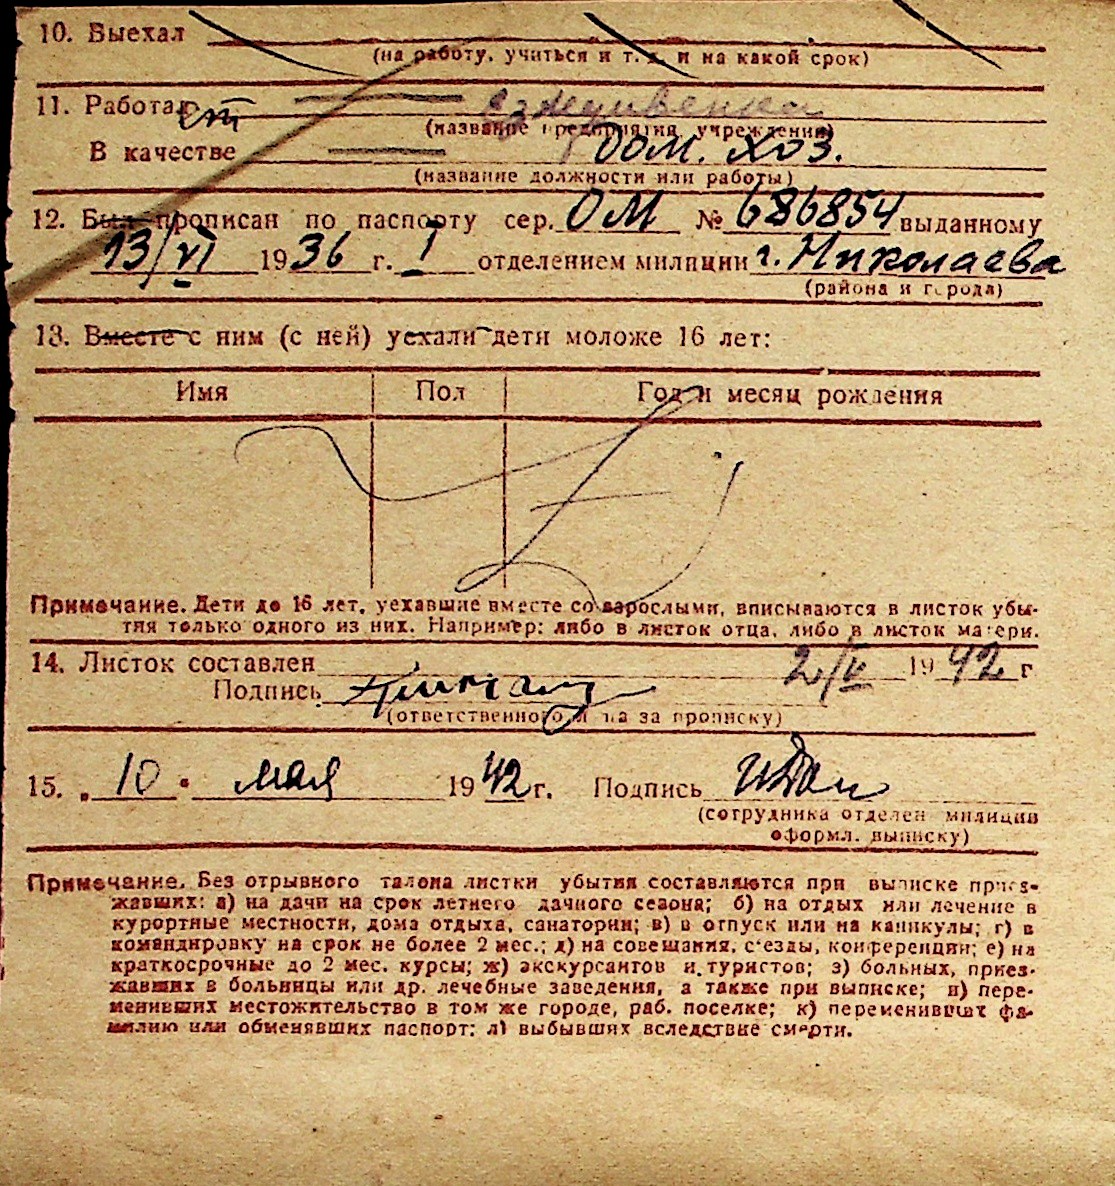 10. Выехал
(на работу, учиться и т. д. и на какой срок)
11. Работает иждивенка
(название предприятия, учреждения)
В качестве дом. хоз.
(название должности или работы)
12. Был прописан по паспорту сер. ОМ № 686854 выданному
13/VI 1936 г. I отделением милиции г. Николаева
(района и города)
13. Вместе с ним (с ней) уехали дети моложе 16 лет:
Имя Пол Год и месяц рождения
Примечание. Дети до 16 лет, уехавшие вместе со взрослыми, вписываются в листок убы-
тия только одного из них. Например: либо в листок отца, либо в листок матери.
14. Листок составлен 2/V 1942 г
Подпись
(ответственного л на за прописку)
15. „10" мая 1942 г. Подпись
(сотрудника отделен милиции
оформл. выписку)
Примечание. Без отрывного талона листки убытия составляются при выписке приез-
жавших: а) на дачи на срок летнего дачного сезона; б) на отдых или лечение в
курортные местности, дома отдыха, санатории; в) в отпуск или на каникулы; г) в
командировку на срок не более 2 мес.; д) на совещания, с'езды, конференции; е) на
краткосрочные до 2 мес. курсы; ж) экскурсантов и туристов; з) больных, приез-
жавших в больницы или др. лечебные заведения, а также при выписке; и) пере-
менивших местожительство в том же городе, раб. поселке; к) переменивших фа-
милию или обменявших паспорт; л) выбывших вследствие смерти.